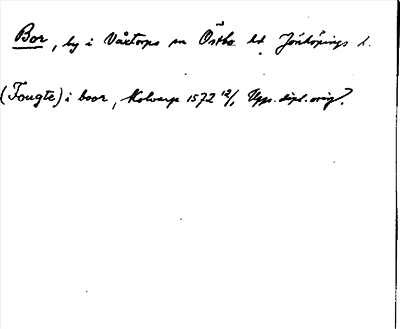 Bor, by i Våxtorps sn Östbo hd Jönköpings l.
(Fougte) i boor, 1572 12/1 Upps. dipl. orig.